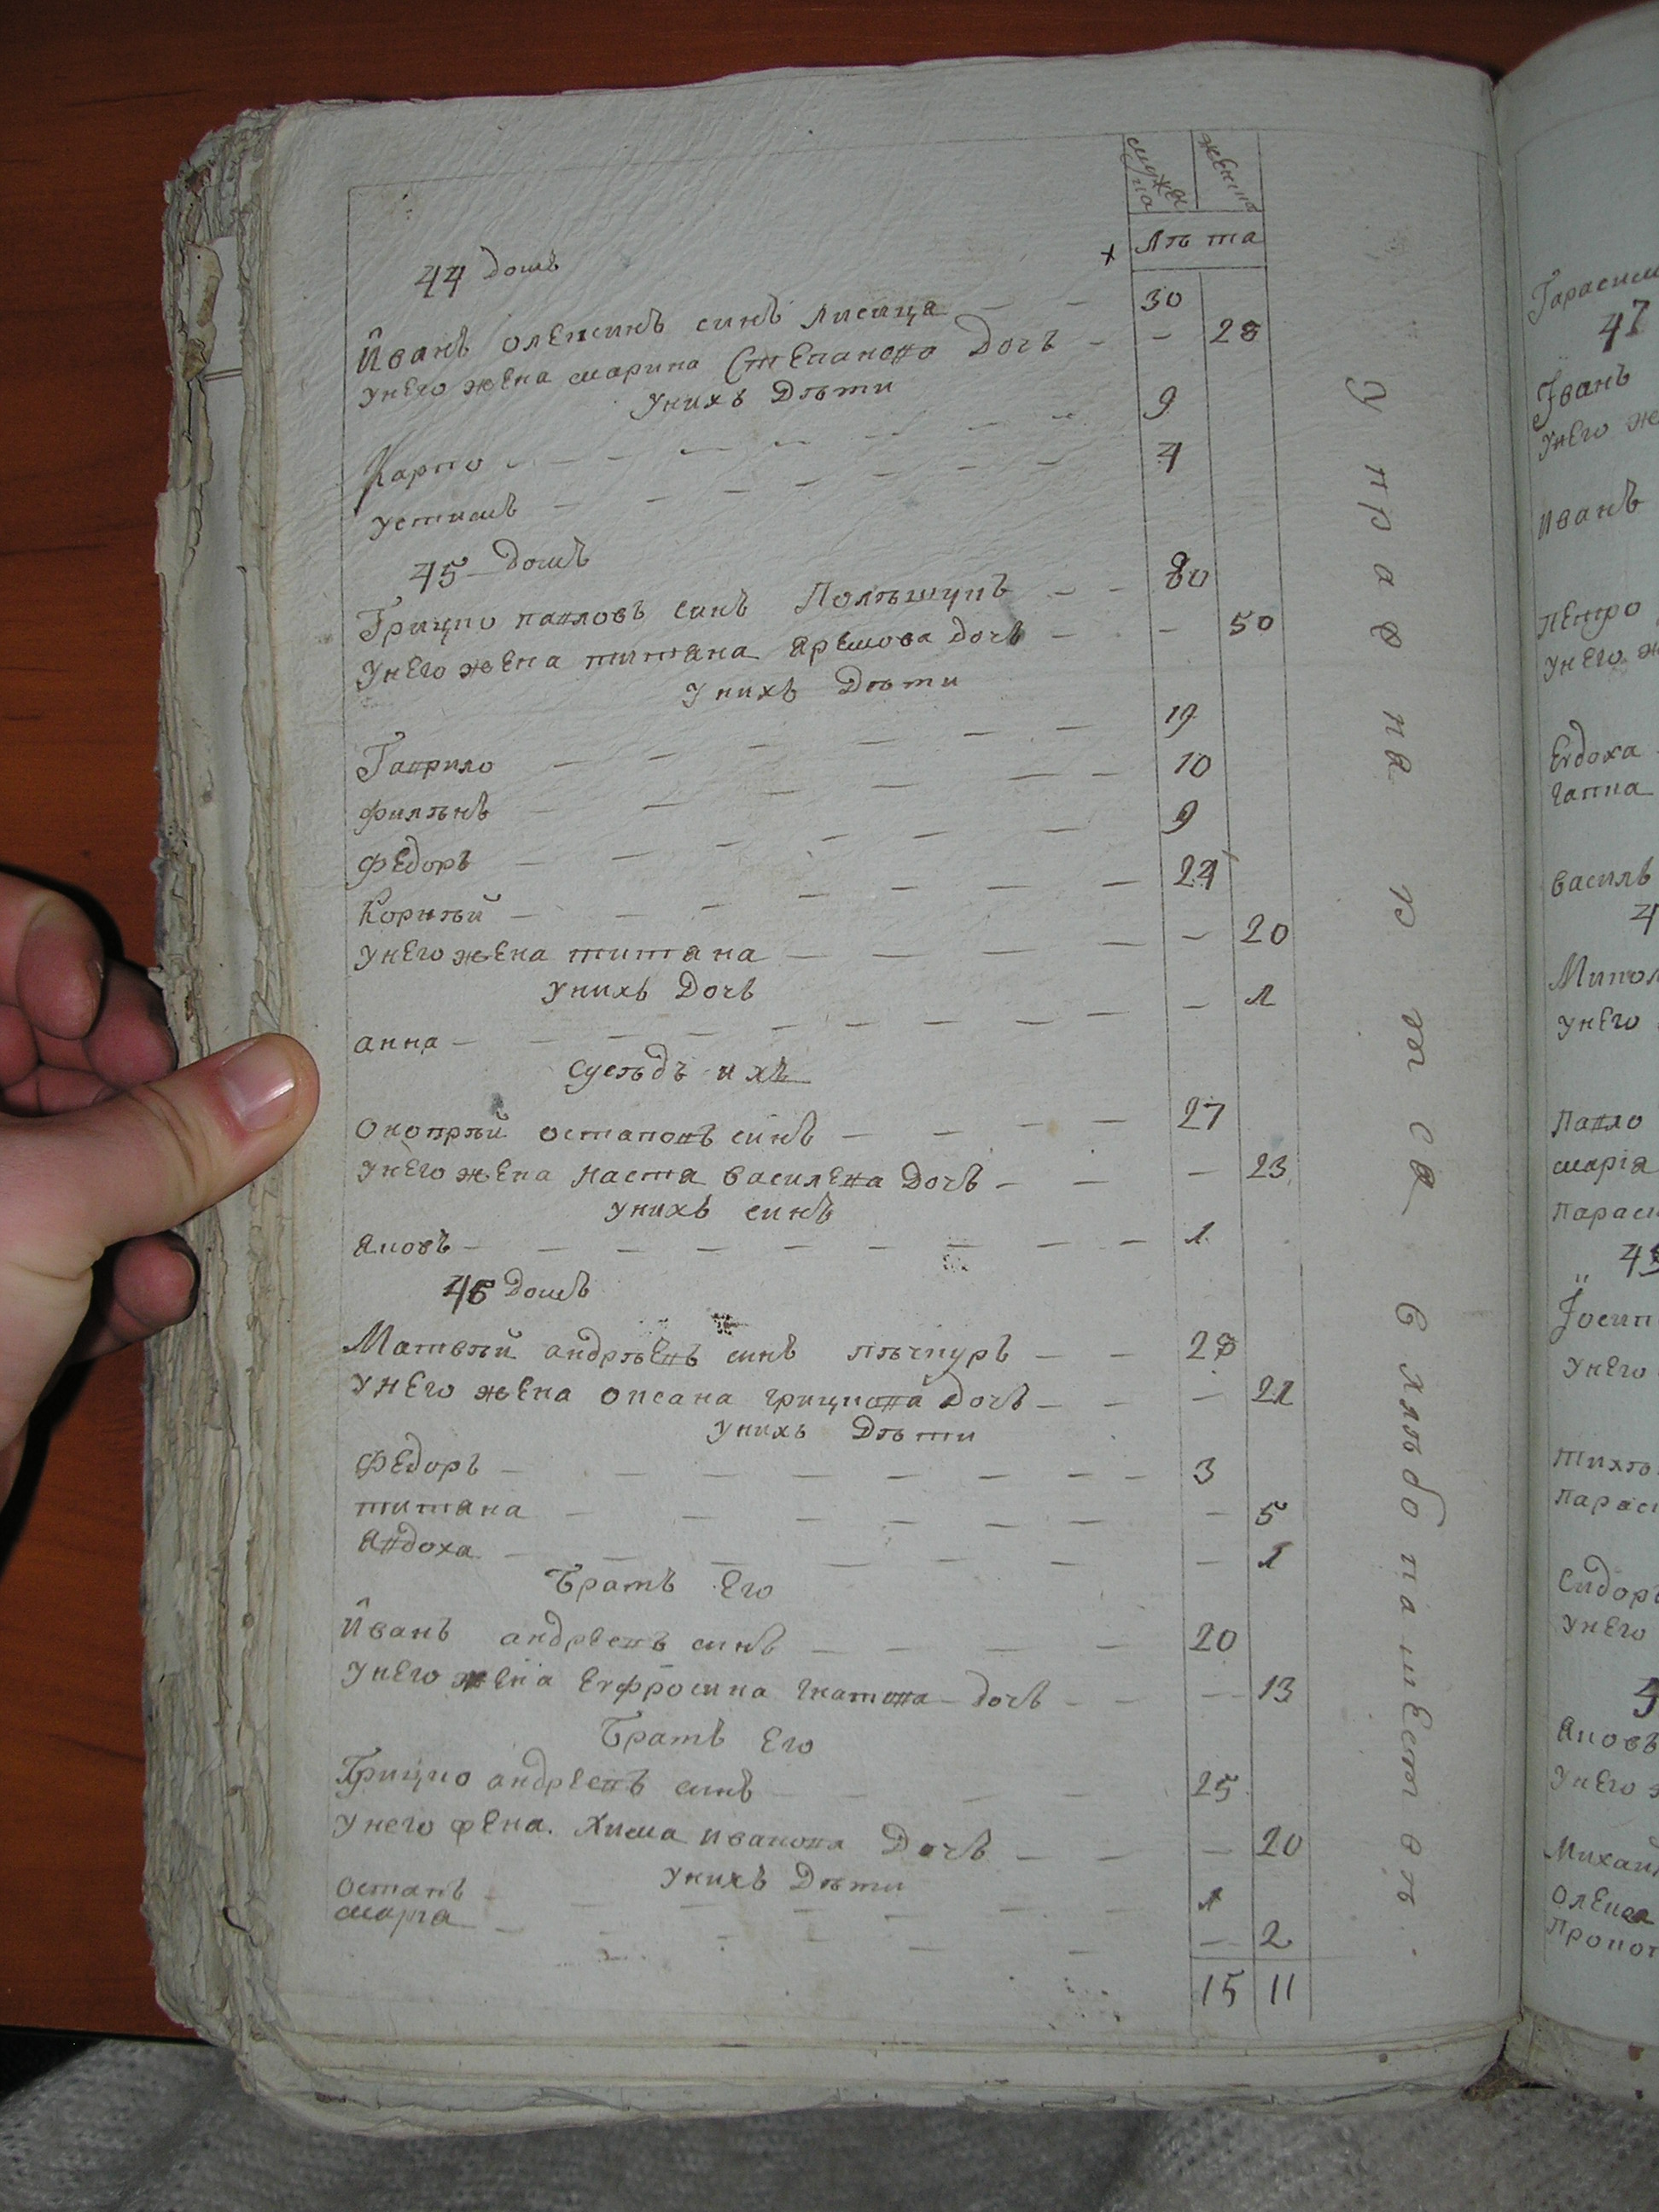 мужеска женска
лѣта
44 домъ
Иванъ олексинъ синъ лисица — — 30
унего жена марина Степанова Дочъ — — 28
унихъ Дѣти
Карпо — — — — 9
устимъ — — — — 4
45 домъ
Грицко павловъ синъ Полѣшукъ — — 80
Унего жена титяна яремова дочъ — — 50
Унихъ Дѣти
Гаврило — — — — 19
филѣнъ — — — — 10
федоръ — — — — 9
Корнѣй — — — — 24
унего жена титяна — — — 20
унихъ Дочъ
анна — — — — 1
Сусѣдъ ихъ
онопрѣй остаповъ синъ — — — 27
унего жена настя василева Дочъ — — 23
унихъ синъ
яковъ — — — — 1
46 домъ
Матвѣй андрѣевъ синъ — — 28
унего жена оксана грицкова дочъ — — 21
унихъ Дѣти
федоръ — — — — 3
титяна — — — — 5
явдоха — — — — 1
Братъ Его
Иванъ андреевъ синъ — — — 20
унего жена Евфросина гнатова дочъ — — 13
Братъ Его
Грицко андреевъ синъ — — — 25
унего фена. Хима иванова Дочъ — — 20
унихъ Дѣти
остапъ — — — — 1
марiя — — — — 2
15 11
Гарасим
47
Iванъ
унего же
иванъ
петро
унего ж
Евдоха
ганна
василь
4
унего
павло
марiя
параск
4
Iосип
унего
парас
Сидоръ
унего
5
яковъ
унего
михаи
олекса
прокоп